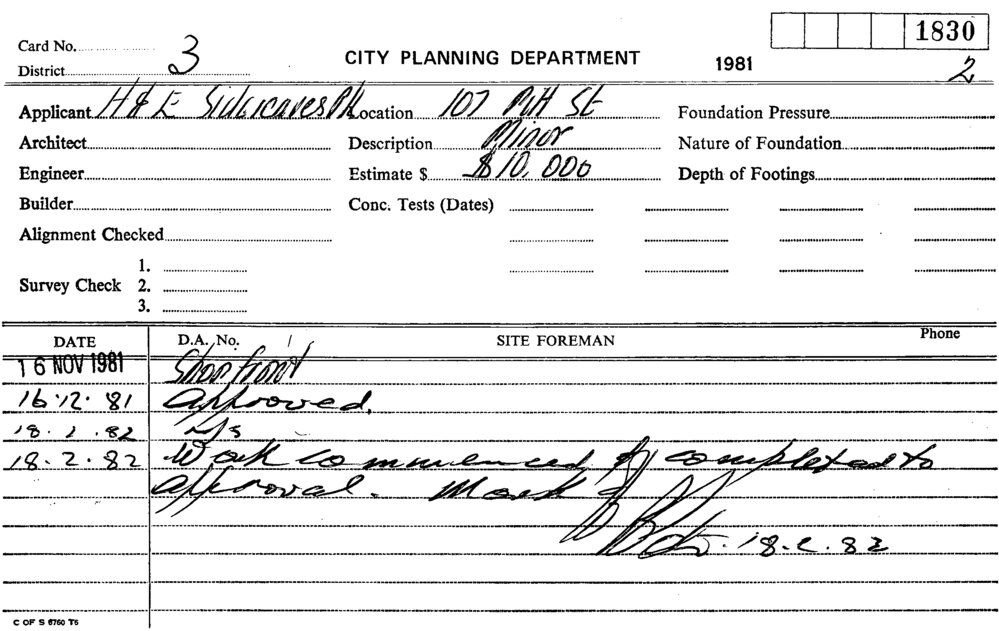 1830
Card No. 3
District
CITY PLANNING DEPARTMENT 1981 2
Applicant H & E Sidgreaves P/L Location 107 Pitt St Foundation Pressure
Architect Description Minor Nature of Foundation
Engineer Estimate $ $10,000 Depth of Footings
Builder Conc. Tests (Dates)
Alignment Checked
1.
Survey Check 2.
3.
DATE D.A. No. SITE FOREMAN Phone
16 NOV 1981 Shopfront
16.12.81 Approved.
18.1.82 N/s
18.2.82 Work commenced & completed to
approval. Mark
18.2.82
C OF S 6760 T6